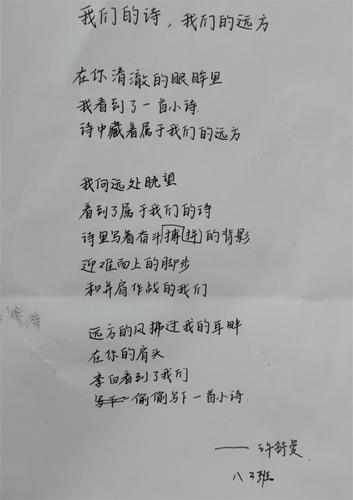 我们的诗，我们的远方
在你清澈的眼眸里
我看到了一首小诗
诗中藏着属于我们的远方
我向远处眺望
看到了属于我们的诗
诗里写着奋斗搏(拼)的背影
迎难而上的脚步
和并肩作战的我们
远方的风拂过我的耳畔
在你的肩头
李白看到了我们
偷偷写下一首小诗
——许舒曼